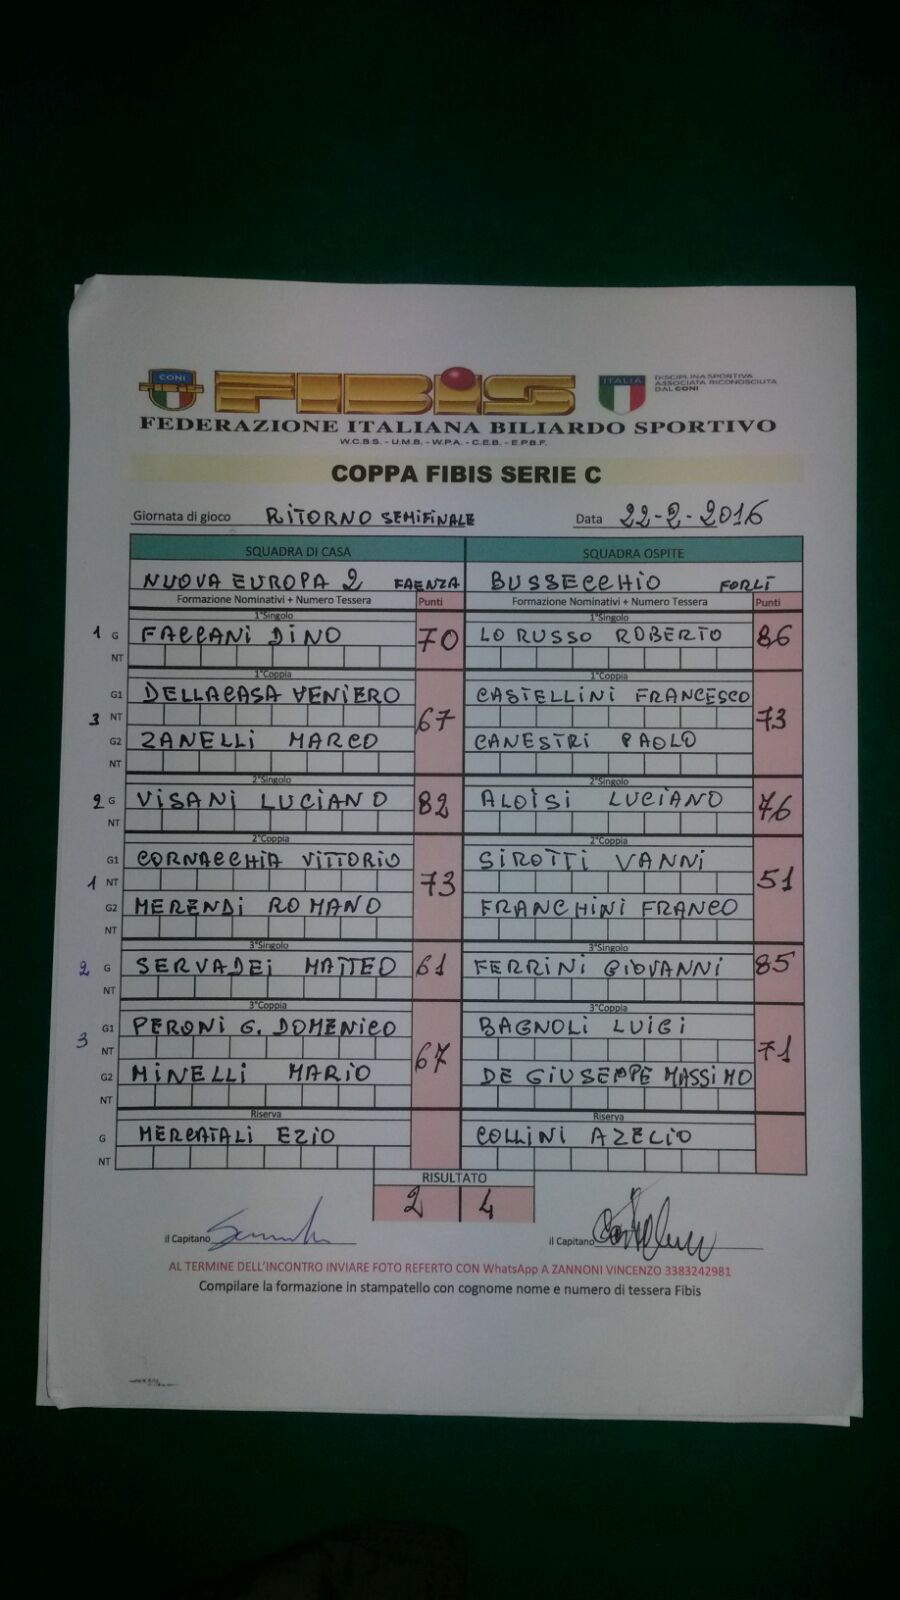 CONI
FIBIS
ITALIA
DISCIPLINA SPORTIVA
ASSOCIATA RICONOSCIUTA
DAL CONI
FEDERAZIONE ITALIANA BILIARDO SPORTIVO
W.C.B.S. - U.M.B. - W.P.A. - C.E.B. - E.P.B.F.
COPPA FIBIS SERIE C
Giornata di gioco RITORNO SEMIFINALE Data 22-2-2016
SQUADRA DI CASA SQUADRA OSPITE
NUOVA EUROPA 2 FAENZA BUSSECCHIO FORLÌ
Formazione Nominativi + Numero Tessera Punti Formazione Nominativi + Numero Tessera Punti
1°Singolo 1°Singolo
1 G FACCANI DINO 70 LO RUSSO ROBERTO 86
NT
1°Coppia 1°Coppia
G1 DELLACASA VENIERO CASTELLINI FRANCESCO
3 NT 67 73
G2 ZANELLI MARCO CANESTRI PAOLO
NT
2°Singolo 2°Singolo
2 G VISANI LUCIANO 82 ALOISI LUCIANO 76
NT
2°Coppia 2°Coppia
G1 CORNACCHIA VITTORIO SIROTTI VANNI
1 NT 73 51
G2 MERENDI ROMANO FRANCHINI FRANCO
NT
3°Singolo 3°Singolo
2 G SERVADEI MATTEO 61 FERRINI GIOVANNI 85
NT
3°Coppia 3°Coppia
G1 PERONI G. DOMENICO BAGNOLI LUIGI
3 NT 67 71
G2 MINELLI MARIO DE GIUSEPPE MASSIMO
NT
Riserva Riserva
G MERCATALI EZIO COLLINI AZELIO
NT
RISULTATO
2 4
il Capitano il Capitano
AL TERMINE DELL'INCONTRO INVIARE FOTO REFERTO CON WhatsApp A ZANNONI VINCENZO 3383242981
Compilare la formazione in stampatello con cognome nome e numero di tessera Fibis